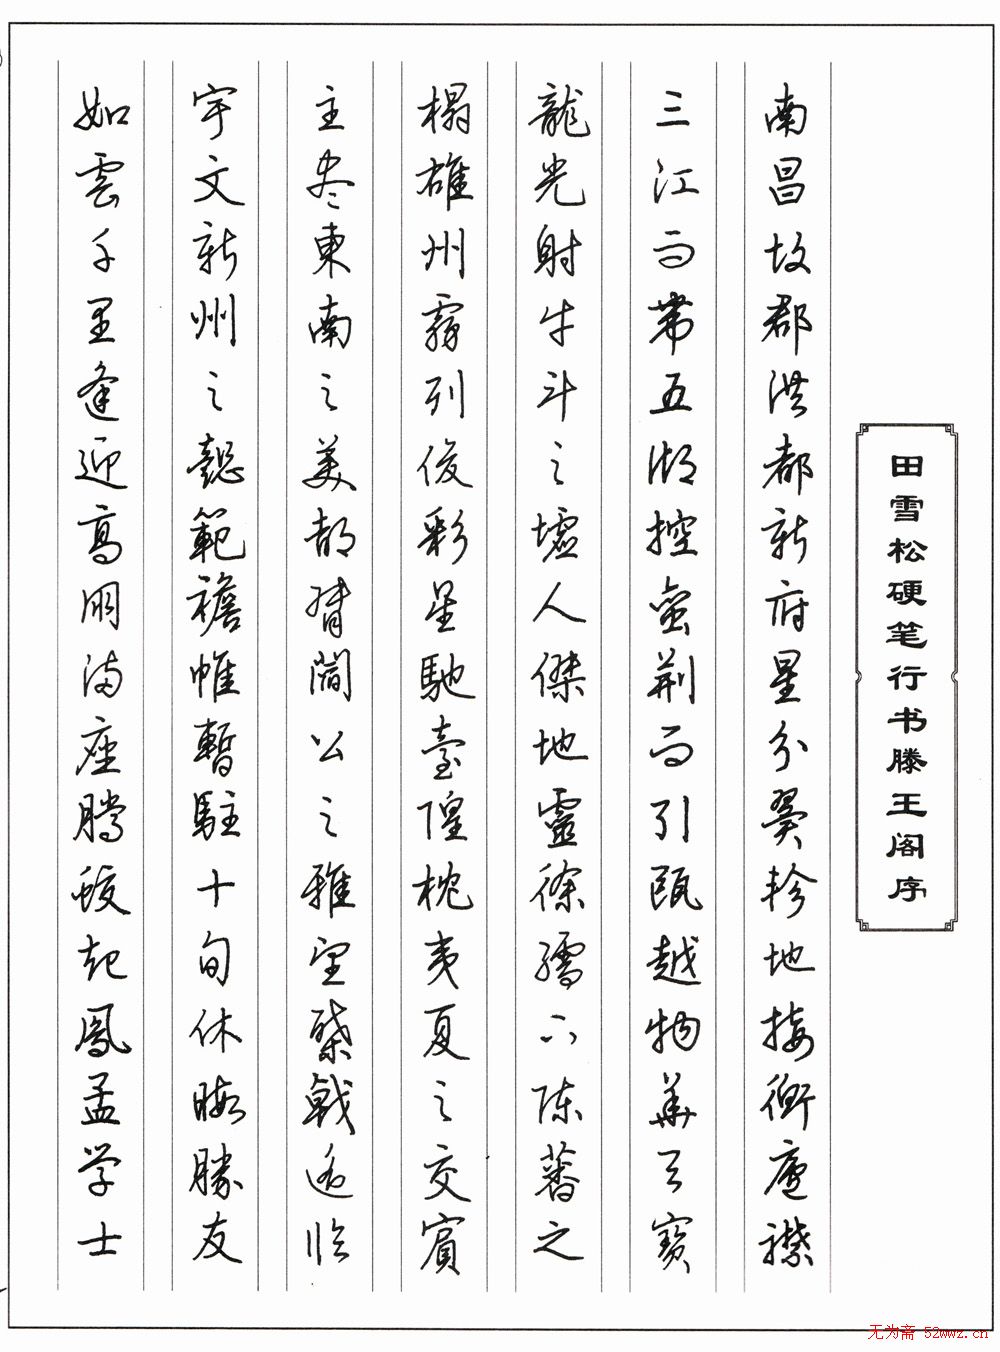 田雪松硬笔行书滕王阁序
南昌故郡洪都新府星分翼軫地接衡廬襟
三江而帶五湖控蛮荆而引甌越物華天寶
龍光射牛斗之墟人傑地靈徐孺下陳蕃之
榻雄州霧列俊彩星馳臺隍枕夷夏之交賓
主尽東南之美都督閻公之雅望棨戟遥临
宇文新州之懿範襜帷暫駐十旬休暇勝友
如雲千里逢迎高朋满座騰蛟起鳳孟学士
无为斋 52wwz.cn